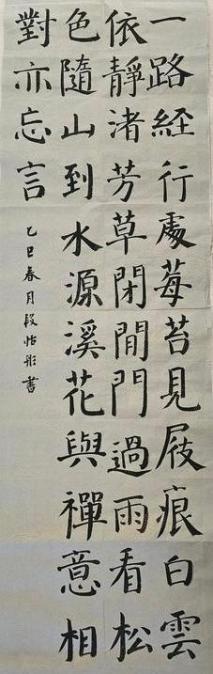 一路經行處莓苔見屐痕白雲
依靜渚芳草閉閒門過雨看松
色隨山到水源溪花與禪意相
對亦忘言
乙巳春月段怡彤書